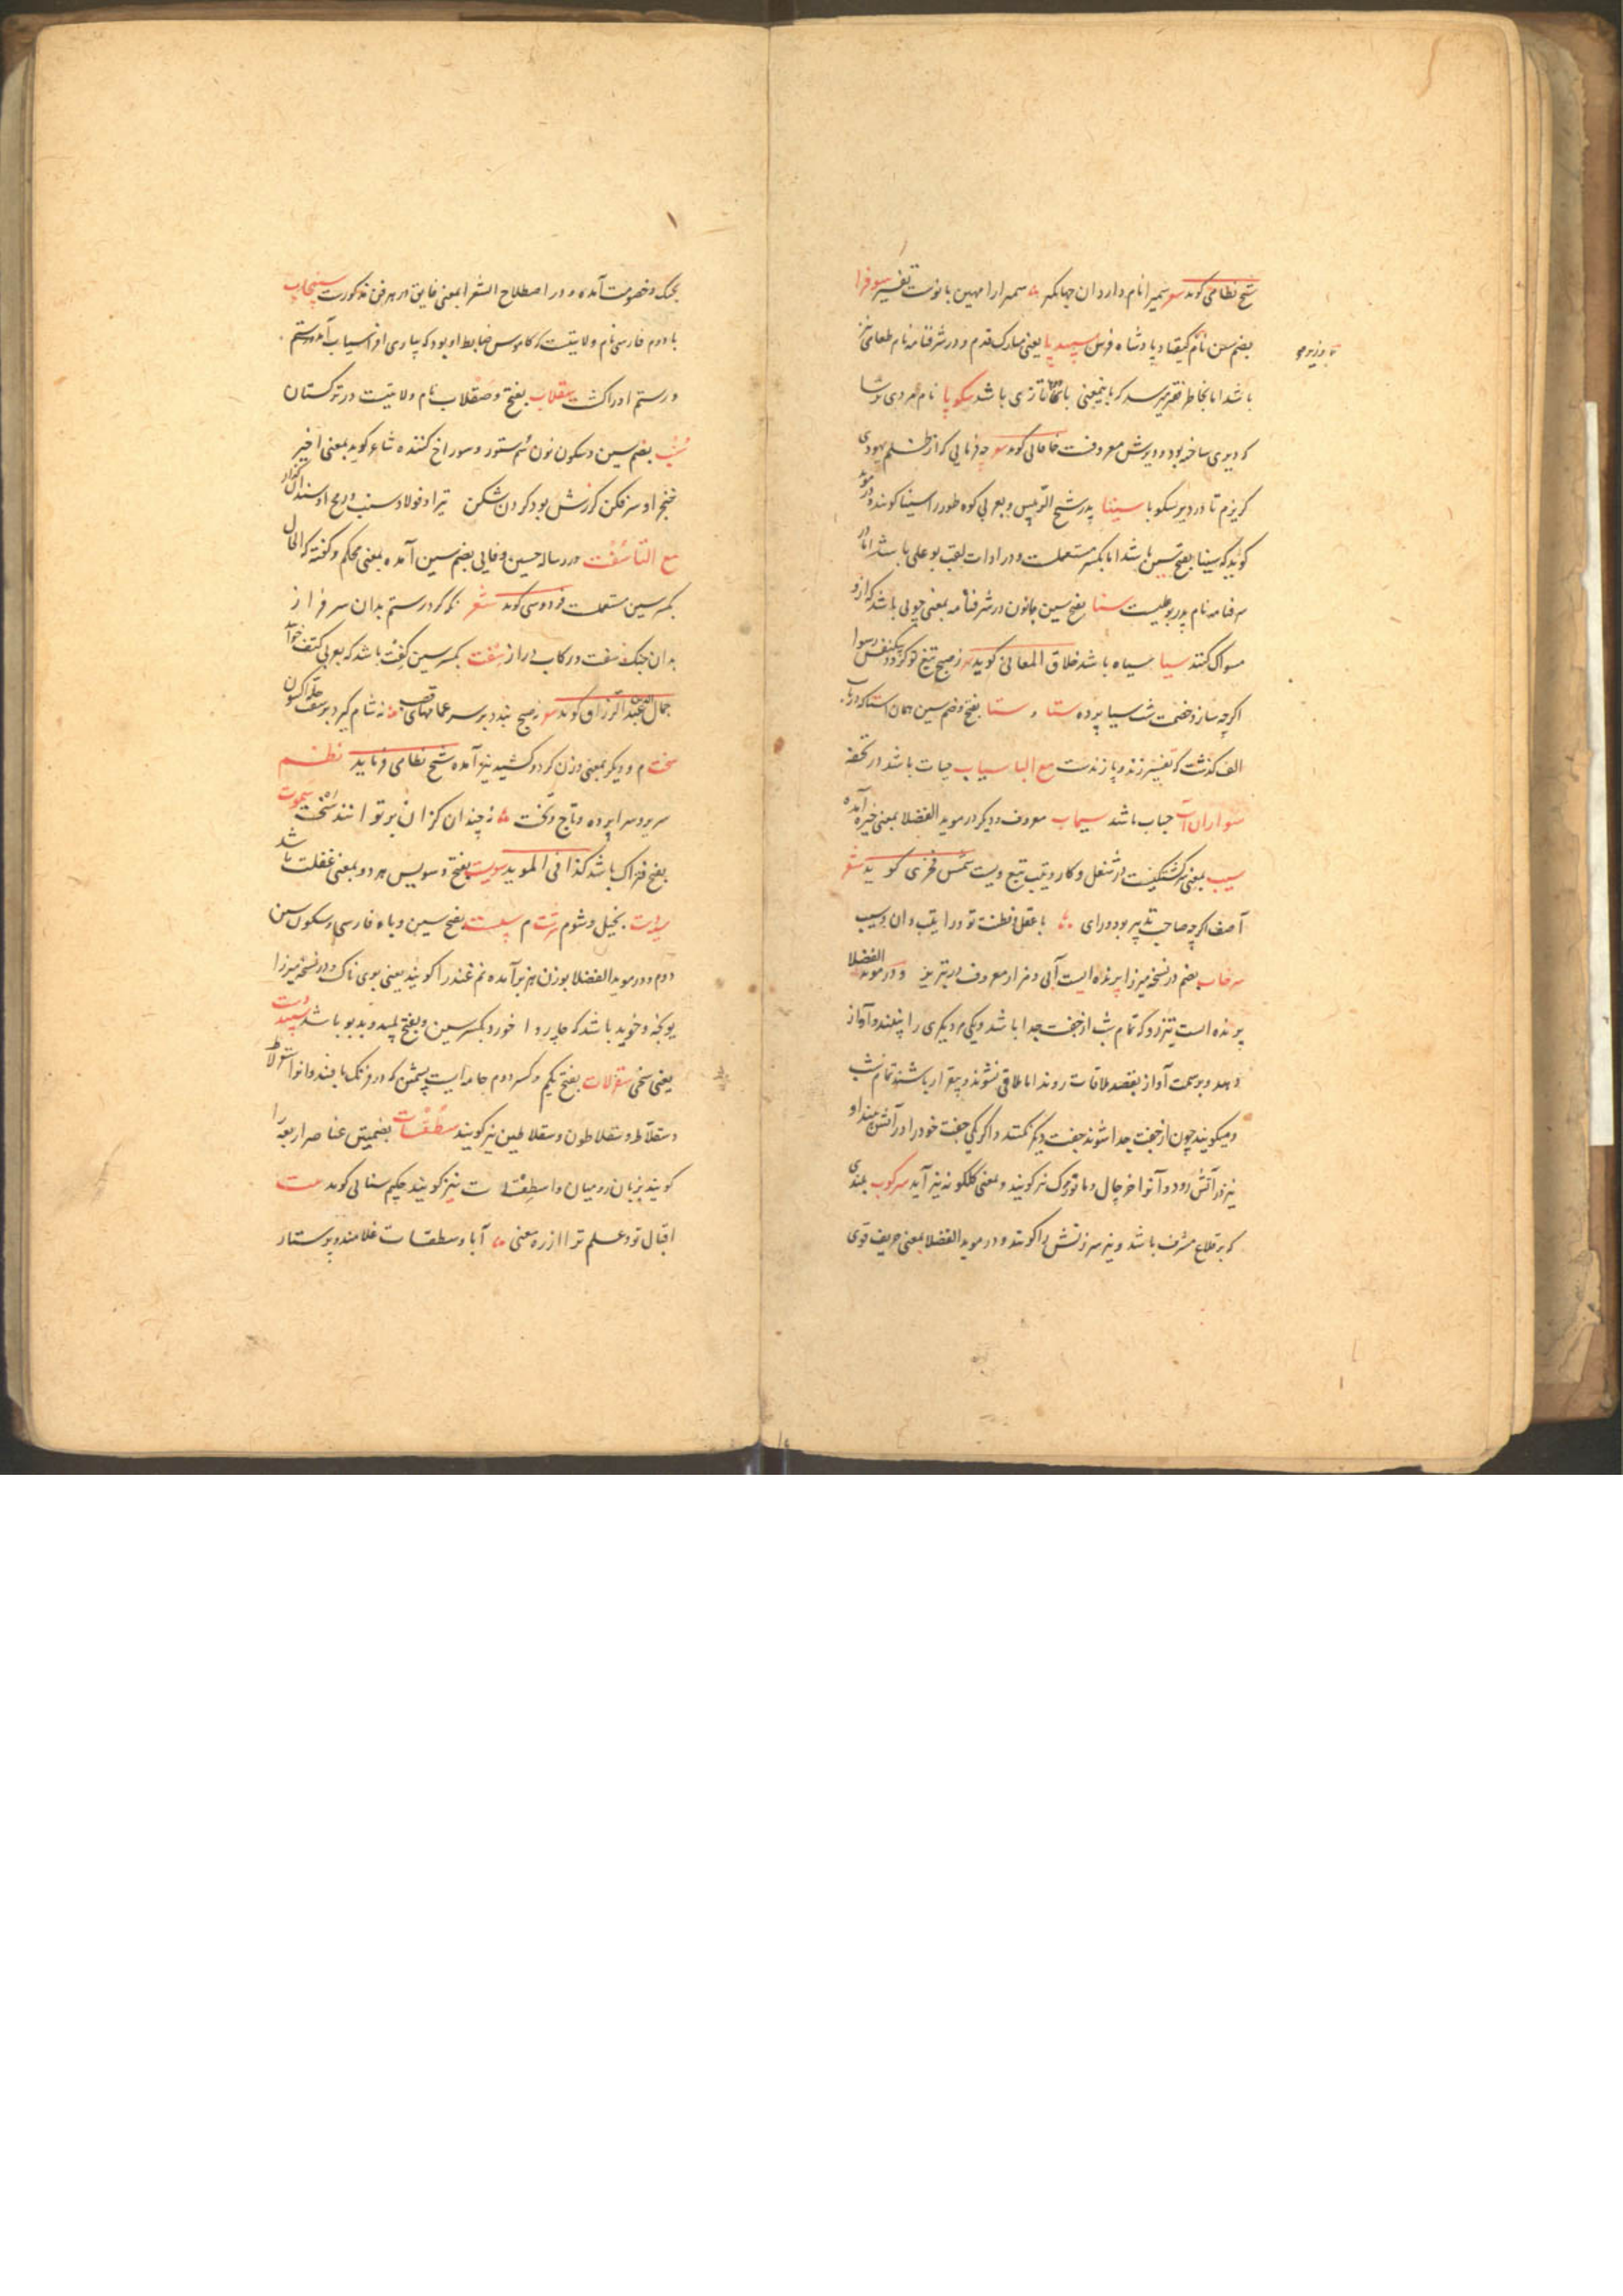 شیخ نظامی کوید شعر سمیرا نام دارد ان جهانکیر سمیرا را مهین بانوست تفسیر سوفرا
بضم سین نام کیقباد پادشاه فرس سپید پا یعنی مبارک قدم و در شرفنامه نام طعامی نیز
باشد اما بخاطر فقیر میرسد که باینمعنی تازی باشد سکوبا نام مردی ترسا
که دیری ساخته بود و دیرش معروفست خاقانی کوید شعر چه فرمایی که از ظلم یهودی
کریزم تا در دیر سکوبا سینا پدر شیخ الرییس و بعربی کوه طور را سینا کویند
کوید که سینا بفتح سین باشد اما بکسر مستعملست و در ادات لقب بوعلی باشد اما در
شرفنامه نام پدر بوعلیست ستا بفتح سین با نون در شرفنامه بمعنی چوبی باشد که ازو
مسواک کنند سیا سیاه باشد خلاق المعانی کوید ز صبح تیغ تو کردد بیکنفس رسوا
اکرچه سازد خصمت شب سیا پرده ستا و ستا بفتح و ضم سین همان استا که در باب
الف کذشت که تفسیر زند و پازندست مع البا سیاب حباب باشد در تحفه
سواران آب حباب باشد سیماب معروف و دیکر در موید الفضلا بمعنی خیره آمده
سیب بمعنی سرکشتکیست در شغل و کار و تیب تبع ویست شمس فخری کوید شعر
آصف اکرچه صاحب تدبیر بود و رای با عقل و فطنت تو ورا تیب دان و سیب
سرخاب بضم در نسخه میرزا پرنده ایست آبی و مزار معروف در تبریز و در موید الفضلا
پرنده است تیزرو که تمام شب از جفت جدا باشد و یکی دیکری را نبیند و آواز
دهد و بر سمت آواز بقصد ملاقات روند اما ملاقی نشوند و بیقرار باشند تمام شب
و میکویند چون از جفت جدا شوند جفت دیکر نکنند و اکر یکی جفت خود را در آتش بیند او
نیز در آتش رود و آنرا خرچال و ماتورک نیز کویند و بمعنی کلکونه نیز آید سرکوب بلندی
که بر قلاع مشرف باشد و نیز سرزنش را کویند و در موید الفضلا بمعنی حریف قوی
بجنک و خصومت آمده و در اصطلاح الشعرا بمعنی فایق در هر فن مذکورست سپنجاب
با دوم فارسی نام ولایتیست که کاموس ضابط او بود که بیاری افراسیاب آمد برستم
و رستم او را کشت سقلاب بفتح و صقلاب نام ولایتیست در ترکستان
سنب بضم سین و سکون نون سم ستور و سوراخ کننده شاعر کوید بمعنی اخیر
خنجر او سرفکن کرزش بود کردن شکن تیر او فولاد سنب و رمح او سندان کذار
مع التا سفت در رساله حسین وفایی بضم سین آمده بمعنی محکم و کفته که الحال
بکسر سین مستعملست فردوسی کوید شعر نکه کرد رستم بدان سرفراز
بدان چنک سفت و رکاب دراز سفت بکسر سین کفت باشد که بعربی کتف خوانند
جمال الدین عبد الرزاق کوید شعر نه صبح بندد بر سر عمامهای قصب نه شام کیرد بر سفت حله اکسون
سخت م و دیکر بمعنی وزن کرد و کشید نیز آمده شیخ نظامی فرماید نظم
سریر و سراپرده و تاج و تخت نه چندان کزان بر توانند سخت سموت
بفتح فتراک باشد کذا فی الموید سویت بفتح و سویس هر دو بمعنی غفلت باشد
بخیل و شوم م بفتح سین و باء فارسی و سکون سین
دوم و در موید الفضلا بوزن هنر برآمده غندرا کویند یعنی بوی ناک و در نسخه میرزا
یونجه و خوید باشد که چاروا خورد و بکسر سین و بفتح پلید و بدبو باشد سپید دست
یعنی سخی سقرلات بفتح یکم و کسر دوم جامه ایست پشمین که در فرنک بافند و انرا
و سقلاط و سقلاطون و سقلاطین نیز کویند سطقسات بضمتین عناصر اربعه را
کویند بزبان رومیان و اسطقسات نیز کویند حکیم سنایی کوید بیت
اقبال تو و علم ترا از ره معنی آبا و سطقسات غلامند و پرستار